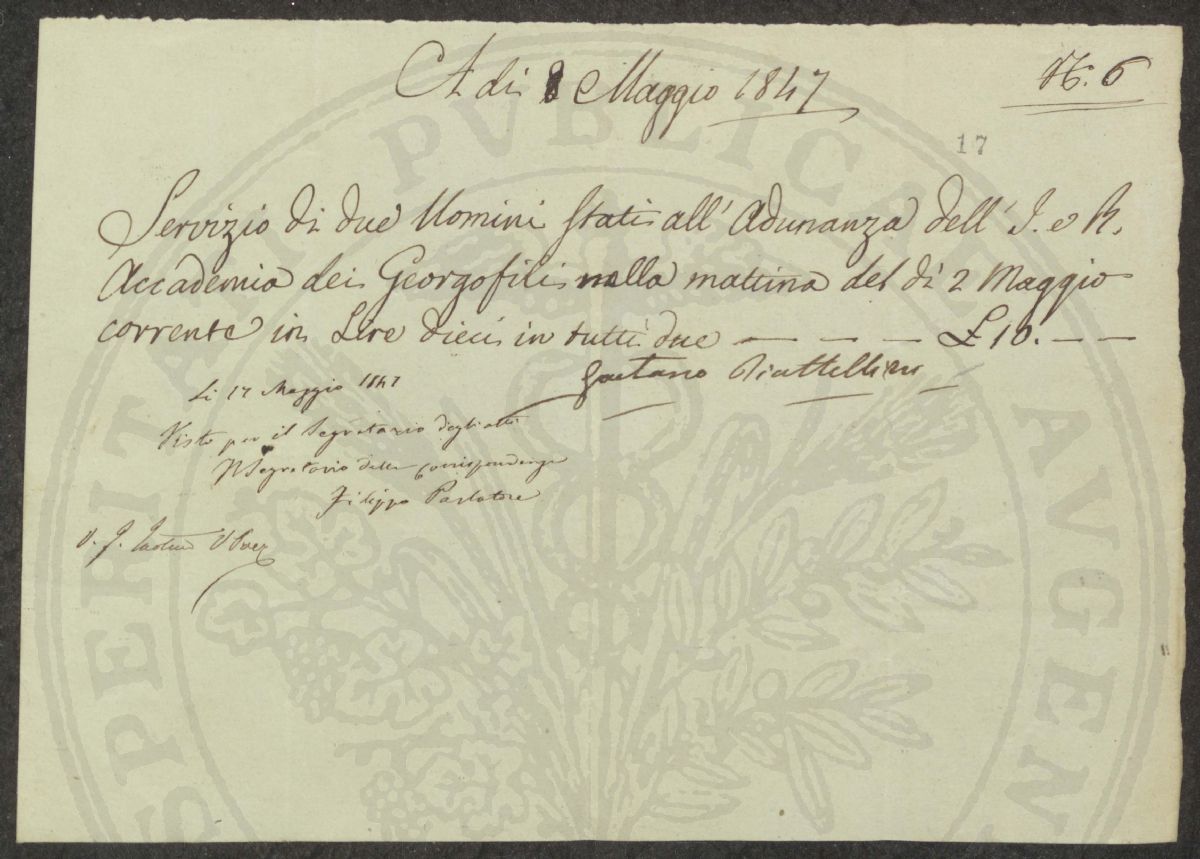 A dì 8 Maggio 1847
N. 6
17
Servizio di due Uomini stati all' Adunanza dell' I. e R.
Accademia dei Georgofili nella mattina del dì 2 Maggio
corrente in Lire dieci in tutti due — — — — £ 10. — —
Gaetano Piattellini
Li 17 Maggio 1847
Visto per il Segretario degli atti
Il Segretario delle Corrispondenze
Filippo Parlatore
V.
PROSPERITATI PVBLICAE AVGENDAE